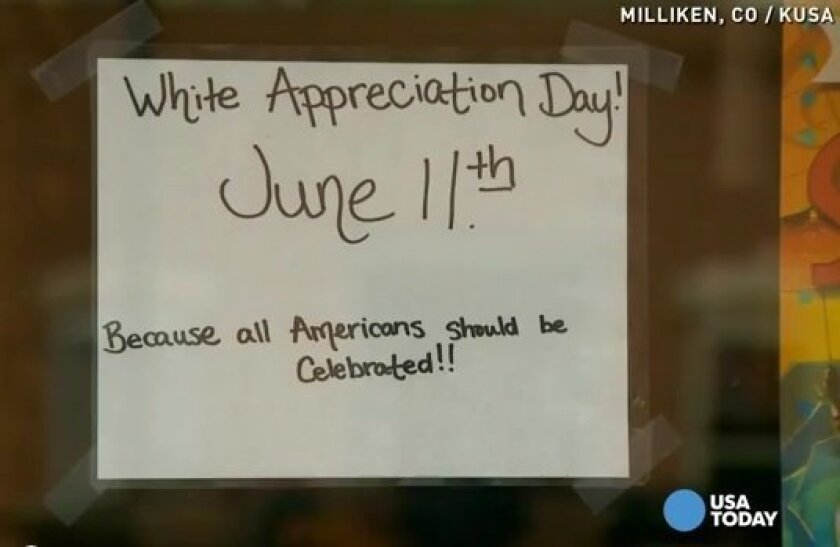 MILLIKEN, CO / KUSA
White Appreciation Day!
June 11th.
Because all Americans should be
Celebrated!!
USA
TODAY